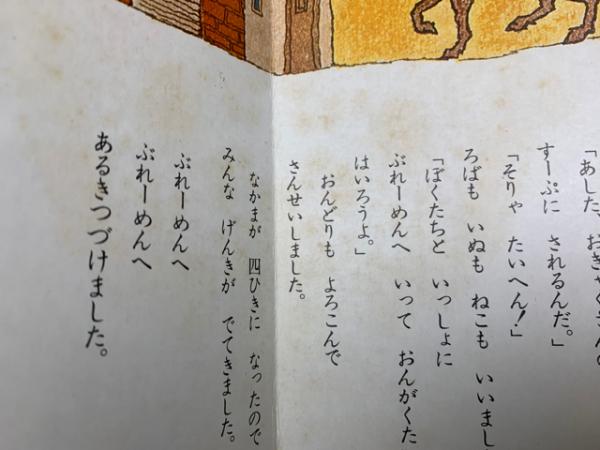 「あした、おきゃくさんの
すーぷに されるんだ。」
「そりゃ たいへん！」
ろばも いぬも ねこも いいまし
「ぼくたちと いっしょに
ぶれーめんへ いって おんがくた
はいろうよ。」
おんどりも よろこんで
さんせいしました。
なかまが 四ひきに なったので
みんな げんきが でてきました。
ぶれーめんへ
ぶれーめんへ
あるきつづけました。